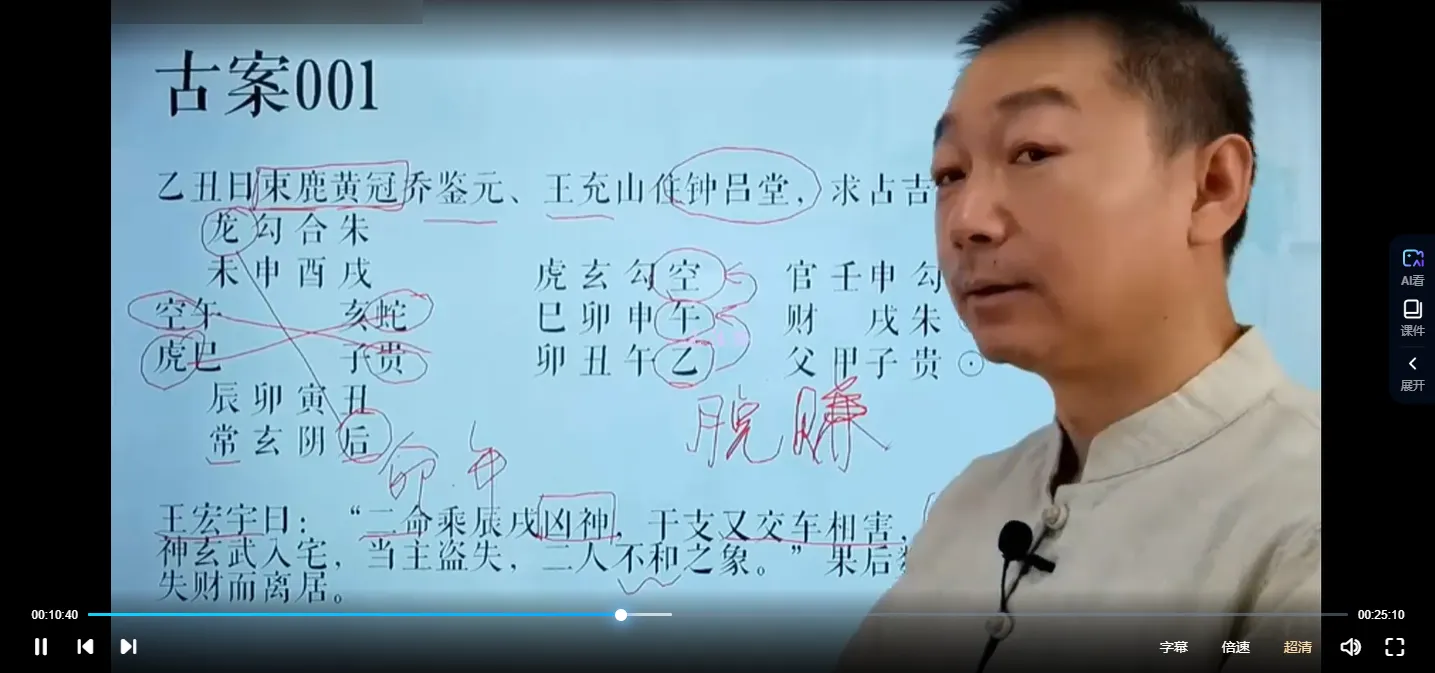 古案001
乙丑日束鹿黄冠乔鉴元、王充山住钟吕堂，求占吉
龙勾合朱
未申酉戌 虎玄勾空 官壬申勾
空午 亥蛇 巳卯申午 财 戌朱
虎巳 子贵 卯丑午乙 父甲子贵⊙
辰卯寅丑
常玄阴后
脱赚
卯午
王宏宇曰：“二命乘辰戌凶神，干支又交车相害，
神玄武入宅，当主盗失，二人不和之象。”果后
失财而离居。
AI看
课件
展开
00:10:40 00:25:10
字幕 倍速 超清